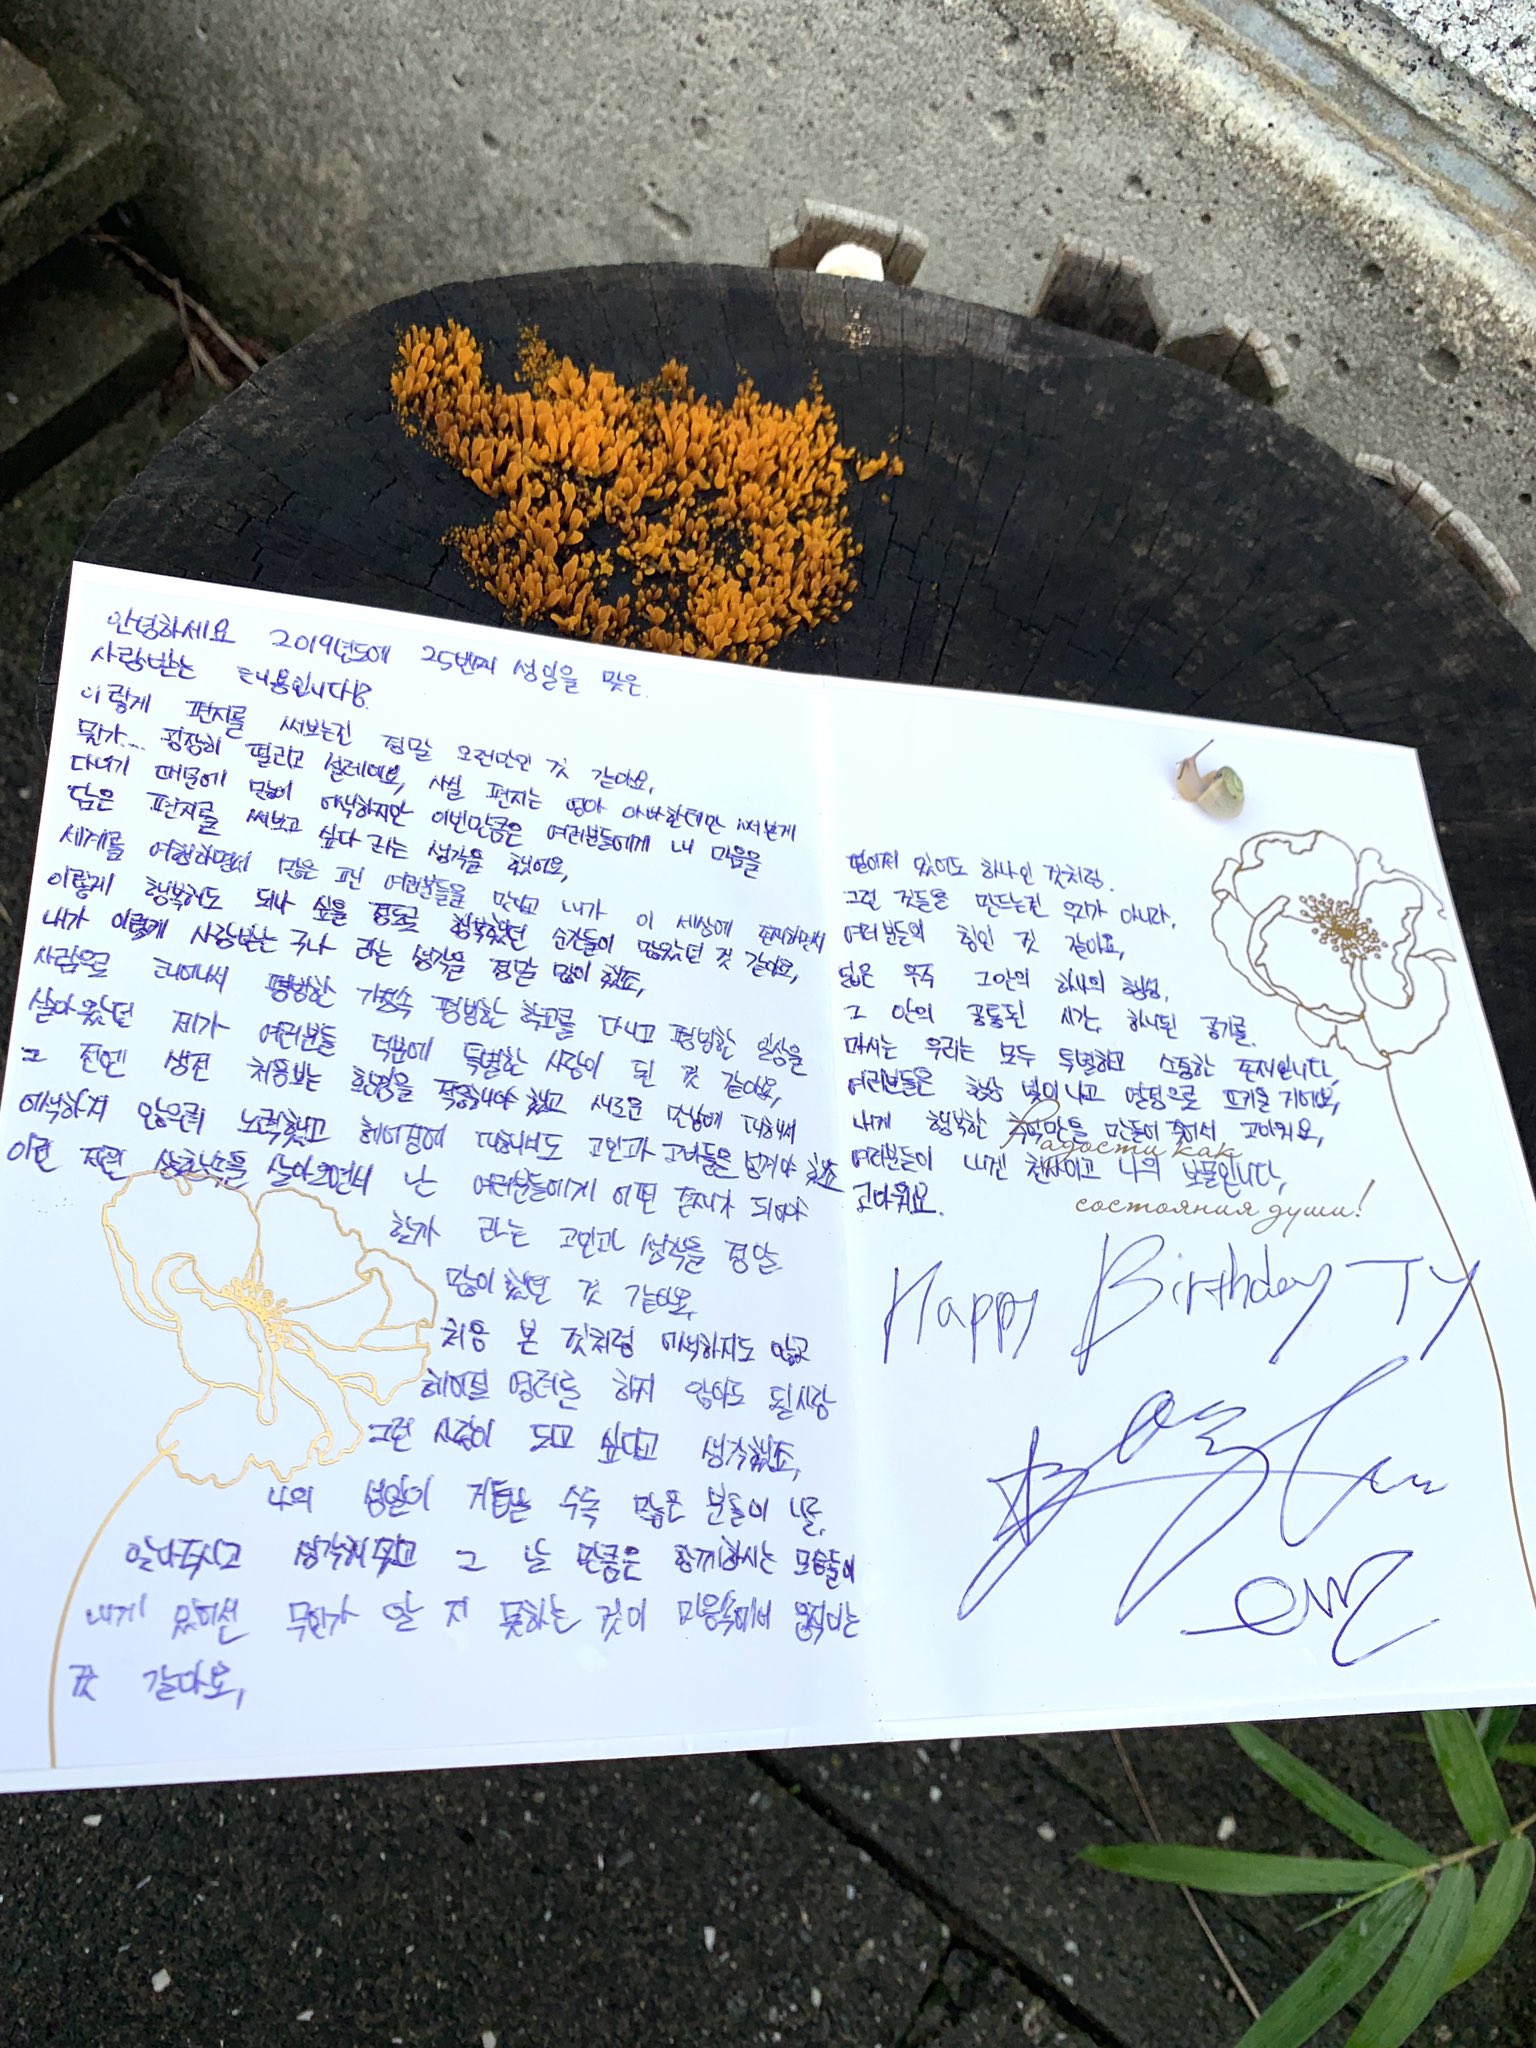 안녕하세요 2019년도에 25번째 생일을 맞은
사랑받는 태용입니다!
이렇게 편지를 써보는건 정말 오랜만인 것 같아요,
뭔가... 굉장히 떨리고 설레이네요, 사실 편지는 엄마 아빠한테만 써본게
다였기 때문에 많이 어색하지만 이번만큼은 여러분들에게 내 마음을
담은 편지를 써보고 싶다 라는 생각을 했어요,
세계를 여행하면서 많은 팬 여러분들을 만나고 내가 이 세상에 존재하면서
이렇게 행복해도 되나 싶을 정도로 행복했던 순간들이 많았던 것 같아요,
내가 이렇게 사랑받는구나 라는 생각을 정말 많이 했죠,
사람으로 태어나서 평범한 가정속 평범한 학교를 다니고 평범한 일상을
살아왔던 제가 여러분들 덕분에 특별한 사람이 된 것 같아요,
그 전엔 생전 처음보는 환경을 적응해야 했고 새로운 만남에 대해서
어색하지 않으려 노력했고 헤어짐에 대해서도 고민과 고비들을 넘겨야 했죠
이런 저런 상황속을 살아오면서 난 여러분들에게 어떤 존재가 되어야
할까 라는 고민과 생각을 정말
많이 했던 것 같아요,
처음 본 것처럼 어색하지도 않고
헤어질 염려를 하지 않아도 될 사람
그런 사람이 되고 싶다고 생각했죠,
나의 생일이 거듭날 수록 많은 분들이 나를,
알아주시고 생각해주고 그 날 만큼은 함께하시는 모습들이
내게 있어선 무언가 알 지 못하는 것이 마음속에서 움직이는
것 같아요,
떨어져 있어도 하나인 것처럼.
그런 것들을 만드는건 우리가 아니라,
여러분들의 힘인 것 같아요,
넓은 우주 그안의 하나의 행성,
그 안의 공통된 시간, 하나된 공기를.
마시는 우리는 모두 특별하고 소중한 존재입니다,
여러분들은 항상 빛이나고 열정으로 뜨거운 거에요,
내게 행복한 추억만을 만들어 줘서 고마워요,
Радости как
여러분들이 내겐 천사이고 나의 보물입니다,
состояния души!
고마워요.
Happy Birthday TY